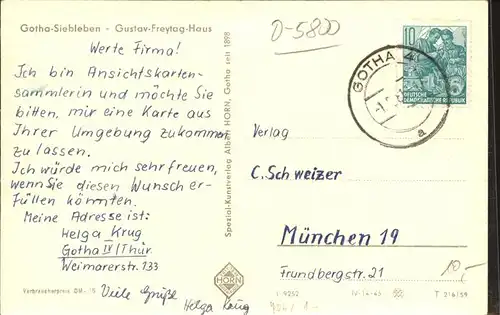 Gotha-Siebleben - Gustav-Freytag-Haus
Werte Firma!
Ich bin Ansichtskarten-
sammlerin und möchte Sie
bitten, mir eine Karte aus
Ihrer Umgebung zukommen
zu lassen.
Ich würde mich sehr freuen,
wenn Sie diesen Wunsch er-
füllen könnten.
Meine Adresse ist:
Helga Krug
Gotha IV/Thür.
Weimarerstr. 133
Viele Grüße
Helga Krug
Verbraucherpreis DM -,15
Spezial-Kunstverlag Albin HORN, Gotha seit 1898
HORN
D-5800
10
DEUTSCHE
DEMOKRATISCHE REPUBLIK
GOTHA 4
a
Verlag
C. Schweizer
München 19
Frundbergstr. 21
10,-
I 9252
IV-14-45
T 216/59